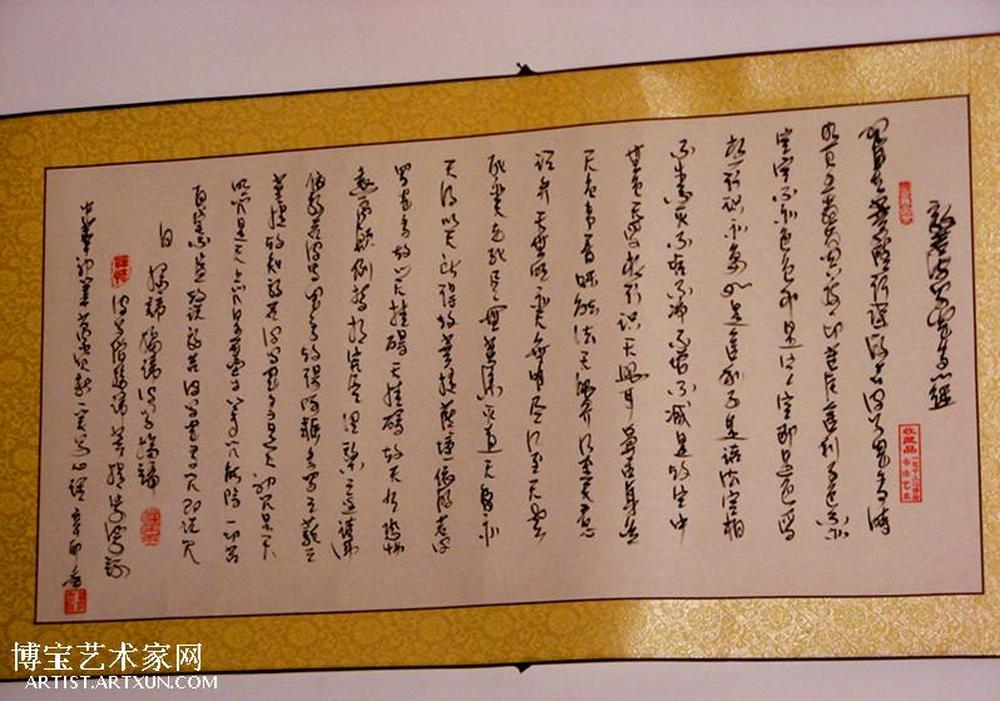 般若波羅蜜多心經
觀自在菩薩行深般若波羅蜜多時
照見五蘊皆空度一切苦厄舍利子色不異
空空不異色色即是空空即是色受
想行識亦復如是舍利子是諸法空相
不生不滅不垢不淨不增不減是故空中
无色无受想行識无眼耳鼻舌身意
无色聲香味觸法无眼界乃至无意
識界无無明亦無無明盡乃至无老
死亦无老死盡無苦集滅道无智亦
无得以无所得故菩提薩埵依般若波
羅蜜多故心无挂礙无挂礙故无有恐怖
遠離顛倒夢想究竟涅槃三世諸佛
依般若波羅蜜多故得阿耨多羅三藐三
菩提故知般若波羅蜜多是大神咒是大
明咒是无上咒是無等等咒能除一切苦
真實不虛故說般若波羅蜜多咒即說咒
曰 揭諦揭諦波羅揭諦
波羅僧揭諦菩提薩婆訶
收藏品
博宝艺术家网
ARTIST.ARTXUN.COM